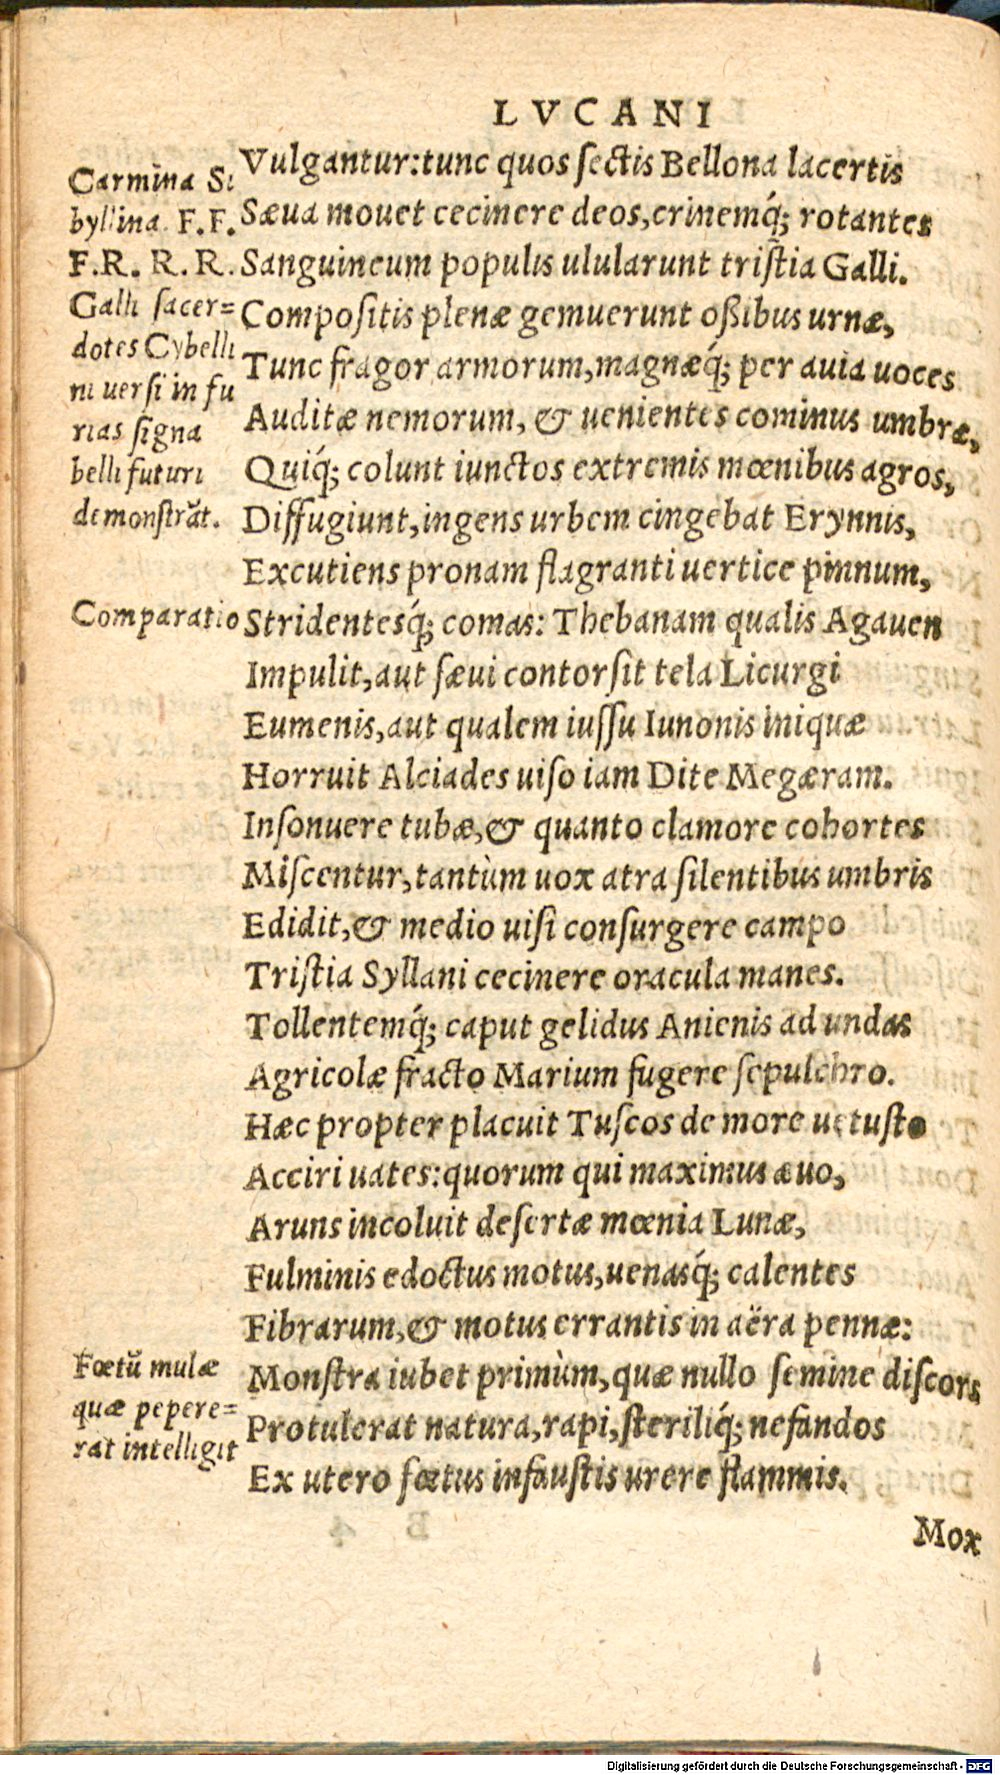 LVCANI
Carmina Si
byllina. F.F.
F.R. R.R.
Galli sacer=
dotes Cybelli
ni uersi in fu
rias signa
belli futuri
demonstrãt.
Comparatio
Fœtũ mulæ
quæ pepere=
rat intelligit
Vulgantur: tunc quos ſectis Bellona lacertis
Sæua mouet cecinere deos, crinemq́; rotantes
Sanguineum populis ulularunt triſtia Galli.
Compoſitis plenæ gemuerunt oßibus urnæ,
Tunc fragor armorum, magnæq́; per auia uoces
Auditæ nemorum, & uenientes cominus umbræ,
Quiq́; colunt iunctos extremis mœnibus agros,
Diffugiunt, ingens urbem cingebat Erynnis,
Excutiens pronam flagranti uertice pinnum,
Stridentesq́; comas: Thebanam qualis Agauen
Impulit, aut ſæui contorſit tela Licurgi
Eumenis, aut qualem iuſſu Iunonis iniquæ
Horruit Alciades uiſo iam Dite Megæram.
Inſonuere tubæ, & quanto clamore cohortes
Miſcentur, tantùm uox atra ſilentibus umbris
Edidit, & medio uiſi conſurgere campo
Triſtia Syllani cecinere oracula manes.
Tollentemq́; caput gelidus Anienis ad undas
Agricolæ fracto Marium fugere ſepulchro.
Hæc propter placuit Tuſcos de more uetuſto
Acciri uates: quorum qui maximus æuo,
Aruns incoluit deſertæ mœnia Lunæ,
Fulminis edoctus motus, uenasq́; calentes
Fibrarum, & motus errantis in aëra pennæ:
Monſtra iubet primùm, quæ nullo ſemine diſcors
Protulerat natura, rapi, ſteriliq́; nefandos
Ex utero fœtus infauſtis urere flammis.
Mox
Digitalisierung gefördert durch die Deutsche Forschungsgemeinschaft - DFG